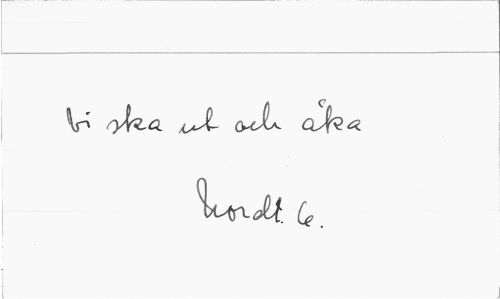 Vi ska ut och åka
Nordt. 6.